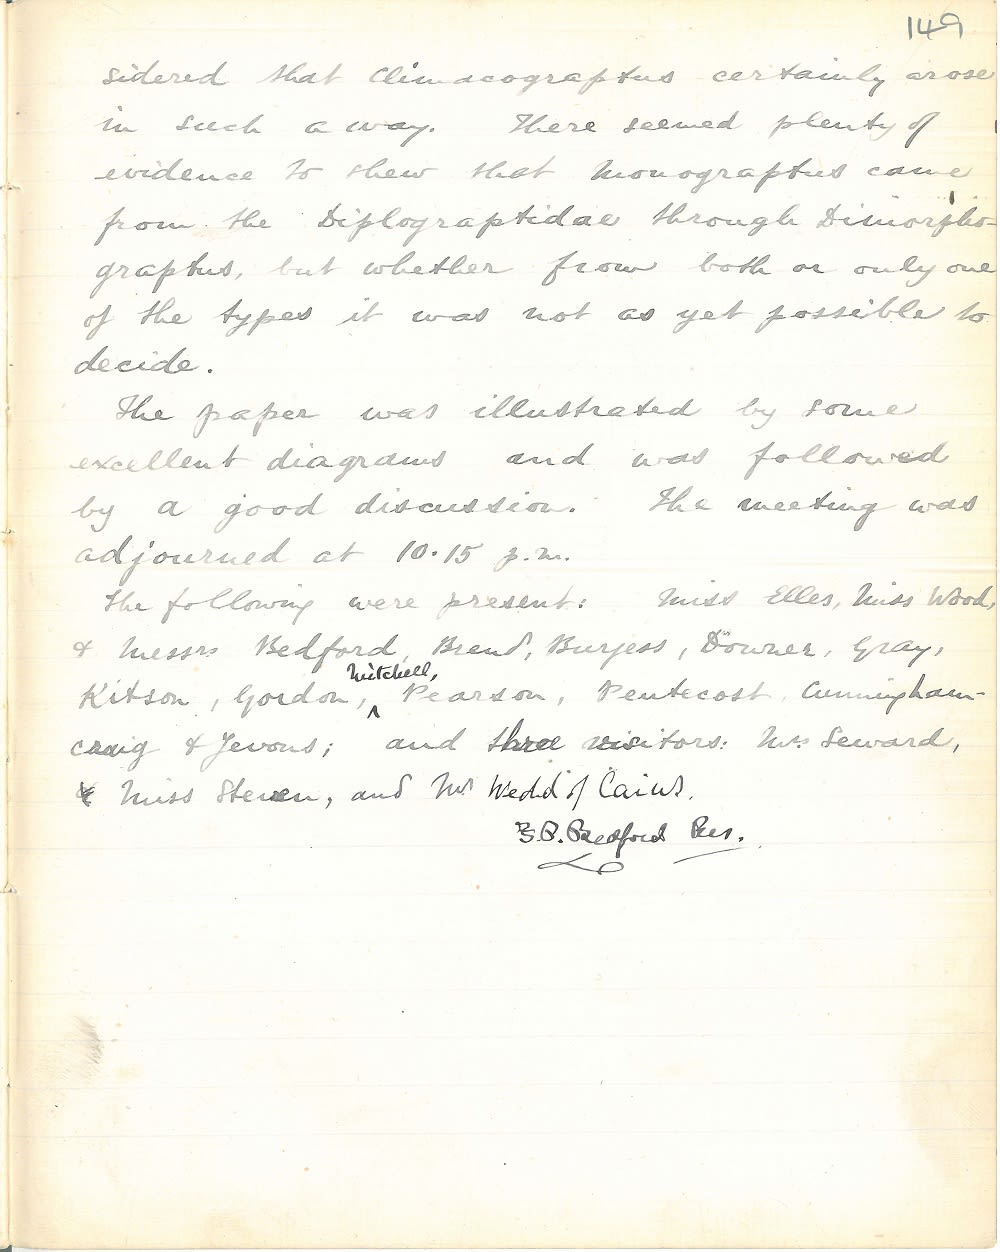 149
sidered that Climacograptus certainly arose
in such a way. There seemed plenty of
evidence to shew that Monograptus came
from the Diplograptidae through Dimorpho-
graptus, but whether from both or only one
of the types it was not as yet possible to
decide.
The paper was illustrated by some
excellent diagrams and was followed
by a good discussion. The meeting was
adjourned at 10.15 p.m.
The following were present: Miss Elles, Miss Wood,
& Messrs Bedford, Brend, Burgess, Downer, Gray,
Kitson, Gordon, Mitchell, Pearson, Pentecost, Cunningham-
craig & Jevons; and three visitors: Mrs Seward,
Miss Steven, and Mr Wedd of Caius.
Bedford Pres.